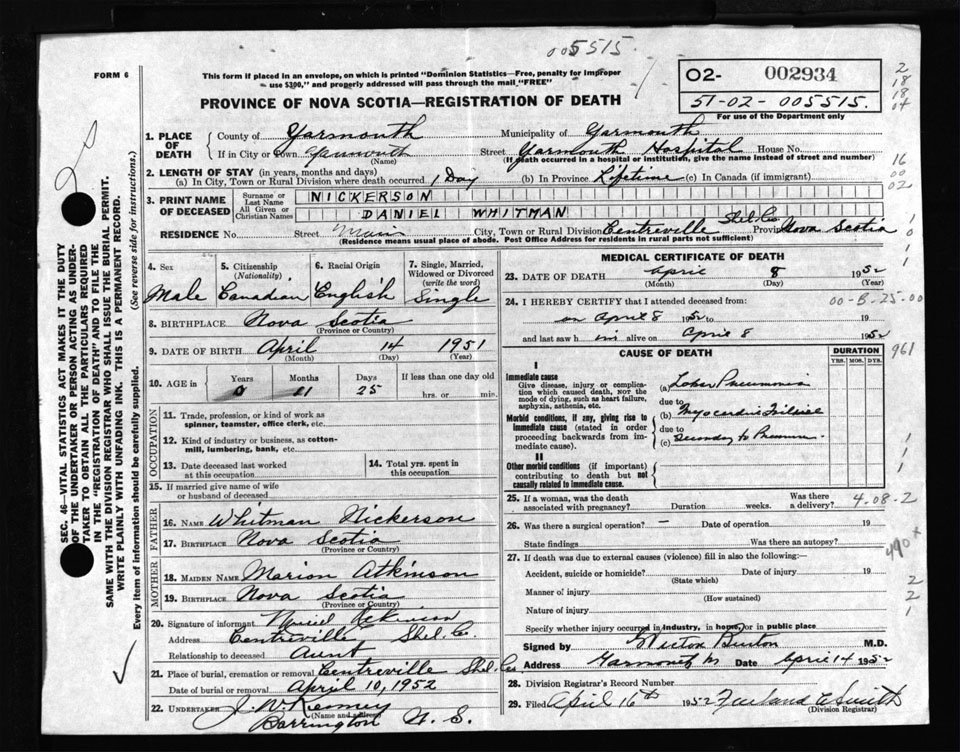 005515.
FORM 6
This form if placed in an envelope, on which is printed "Dominion Statistics—Free, penalty for improper
use $300," and properly addressed will pass through the mail "FREE"
O2- 002934
51-02-005515.
For use of the Department only
PROVINCE OF NOVA SCOTIA—REGISTRATION OF DEATH
2
18
18
04
16
00
02
SEC. 46—VITAL STATISTICS ACT MAKES IT THE DUTY
OF THE UNDERTAKER OR PERSON ACTING AS UNDERTAKER TO OBTAIN ALL THE PARTICULARS REQUIRED
IN THE "REGISTRATION OF DEATH" AND TO FILE THE
SAME WITH THE DIVISION REGISTRAR WHO SHALL ISSUE THE BURIAL PERMIT.
WRITE PLAINLY WITH UNFADING INK. THIS IS A PERMANENT RECORD.
Every item of information should be carefully supplied. (See reverse side for instructions.)
1. PLACE OF DEATH County of Yarmouth Municipality of Yarmouth
If in City or Town Yarmouth (Name) Street Yarmouth Hospital House No.
(If death occurred in a hospital or institution, give the name instead of street and number)
2. LENGTH OF STAY (in years, months and days)
(a) In City, Town or Rural Division where death occurred 1 Day (b) In Province Lifetime (c) In Canada (if immigrant)
3. PRINT NAME OF DECEASED Surname or Last Name NICKERSON
All Given or Christian Names DANIEL WHITMAN
RESIDENCE No. Street Main City, Town or Rural Division Centreville Shel. Co. Province Nova Scotia
(Residence means usual place of abode. Post Office Address for residents in rural parts not sufficient)
4. Sex Male
5. Citizenship (Nationality) Canadian
6. Racial Origin English
7. Single, Married, Widowed or Divorced (write the word) Single
8. BIRTHPLACE Nova Scotia
(Province or Country)
9. DATE OF BIRTH April 14 1951
(Month) (Day) (Year)
10. AGE in Years 0 Months 11 Days 25 If less than one day old hrs. or min.
OCCUPATION
11. Trade, profession, or kind of work as
spinner, teamster, office clerk, etc.
12. Kind of industry or business, as cotton-
mill, lumbering, bank, etc.
13. Date deceased last worked
at this occupation
14. Total yrs. spent in
this occupation
15. If married give name of wife
or husband of deceased
FATHER
16. NAME Whitman Nickerson
17. BIRTHPLACE Nova Scotia
(Province or Country)
MOTHER
18. MAIDEN NAME Marion Atkinson
19. BIRTHPLACE Nova Scotia
(Province or Country)
20. Signature of informant Atkinson
Address Centreville Shel. Co.
Relationship to deceased Aunt
21. Place of burial, cremation or removal Centreville Shel. Co
Date of burial or removal April 10, 1952
22. UNDERTAKER J. W.
(Name and Address)
Barrington N. S.
MEDICAL CERTIFICATE OF DEATH
23. DATE OF DEATH April 8 1952
(Month) (Day) (Year)
24. I HEREBY CERTIFY that I attended deceased from: 00-B-25-00
on April 8 1952 to 19
and last saw him alive on April 8 1952
CAUSE OF DEATH
DURATION
YRS. MOS. DYS.
961
I
Immediate cause
Give disease, injury or compli-
cation which caused death, not the
mode of dying, such as heart failure,
asphyxia, asthenia, etc.
(a) Lobar Pneumonia
due to
Morbid conditions, if any, giving rise to
immediate cause (stated in order
proceeding backwards from im-
mediate cause).
(b)
due to
(c) Secondary to
II
Other morbid conditions (if important)
contributing to death but not
causally related to immediate cause.
25. If a woman, was the death
associated with pregnancy? Duration weeks. Was there
a delivery? 4-08-2
26. Was there a surgical operation? — Date of operation 19
State findings Was there an autopsy?
490x
27. If death was due to external causes (violence) fill in also the following:—
Accident, suicide or homicide? Date of injury 19
(State which)
Manner of injury
(How sustained)
Nature of injury
2
2
1
Specify whether injury occurred in industry, in home, or in public place
Signed by Burton M.D.
Address Yarmouth Date April 14 1952
28. Division Registrar's Record Number
29. Filed April 16th 1952 Smith
(Division Registrar)